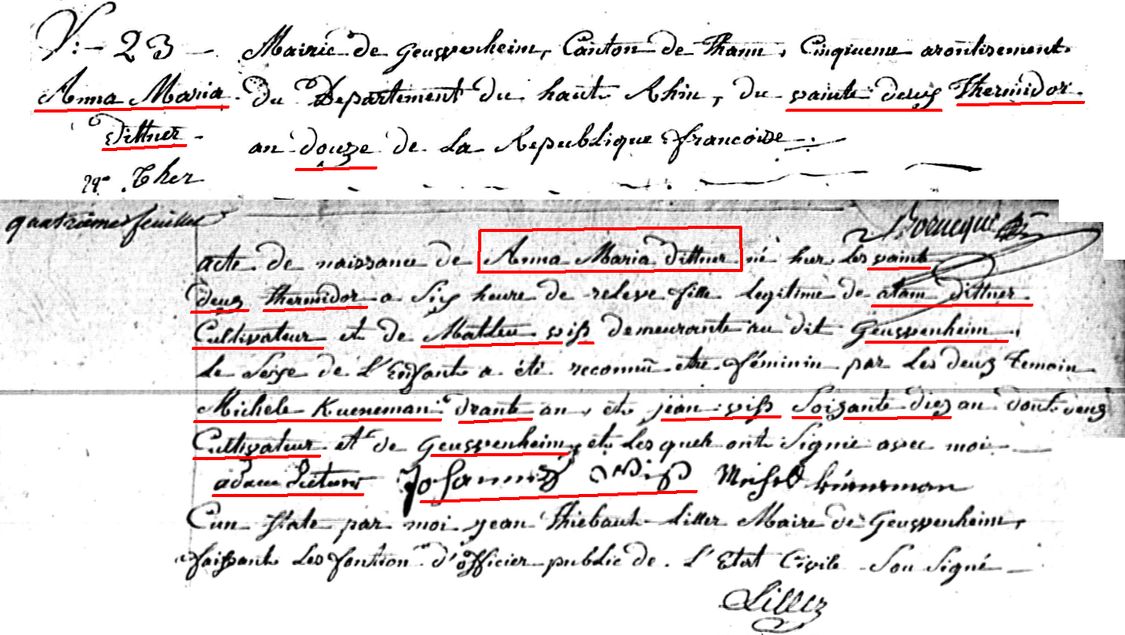 N: 23 Mairie de Geuspenheim, Canton de Thann, Cinqueme arontisement
Anna Maria du Departement du haut Rhin, du vainte deux Thermidor
Dittner an douze de La Republique francoise
22e Ther
quatrieme feuillet
acte de naissance de Anna Maria dittner né hier les vaint
deux thermidor a Six heure de releve fille legitime de atam dittner
Cultivateur et de Matlen wiß demeurante au dit Geuspenheim,
Le Sexe de L'Enfante a été reconnu etre féminin par Les deux temoin
Michele Kueneman drante an, et jean wiß Soisante diez an dont deux
Cultivateur et de Geuspenheim, et Les quels ont Signie avec moi
adam Johannes Wiß Michel Küneman
par moi jean Thiebaut Litler Maire de Geuspenheim,
faissant Les fontion d'officier public de L'Etat Civile Sou Signé